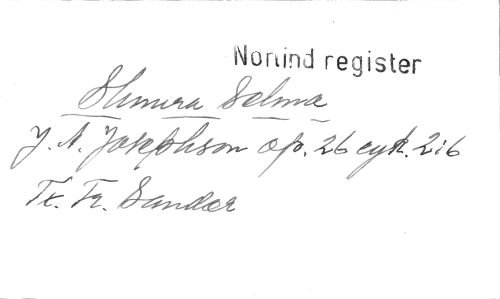 Norlind register
Slumra Selma
J. A. Josephson op. 26 cyk. 2:6
Tx. Fr. Sander